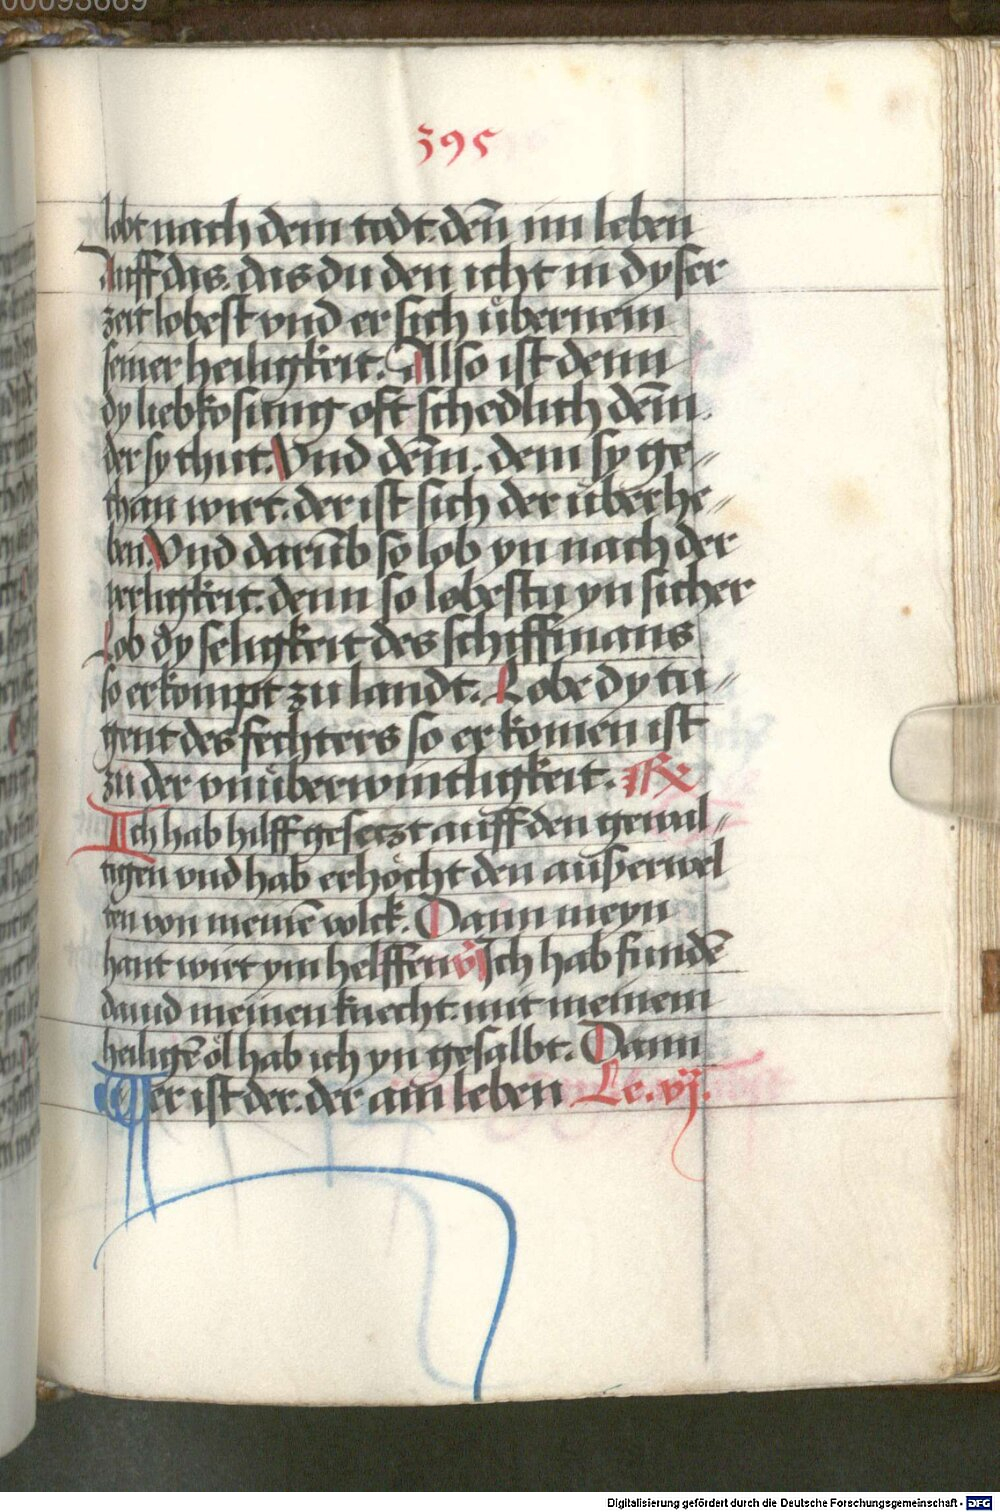 00093669
395
lobt nach dem todt. den̄ im leben
Auff das. das du den icht in dyser
zeit lobest vnd er sich úbernem
seiner heiligkeit. Also ist denn
dy liebkosung oft schedlich dem̄.
der sy thut. Vnd dem̄. dem sy ge〃
than wirt. der ist sich der úberhe〃
ben. Vnd darūb so lob yn nach der
ferligkeit. denn so lobestu yn sicher
Lob dy seligkeit des schiffmans
so er kompt zu landt. Lobe dy tu〃
gent des fechters so er komen ist
zu der vnúberwintligkeit. R℣
Ich hab hilff gesetzt auff den gewal〃
tigen vnd hab erhöcht den außerwel
ten von meinē volck. Dann meyn
hant wirt ym helffen v̄ Ich hab fundē
dauid meinen knecht. mit meinem
heiligē öl hab ich yn gesalbt. Dann
Wer ist der. der ain leben Le. vj.
Digitalisierung gefördert durch die Deutsche Forschungsgemeinschaft - DFG